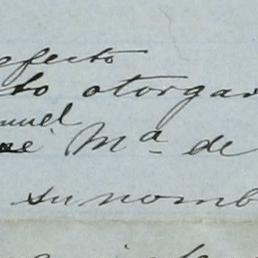 efecto
to otorgar
nuel
Mª de
su nomb